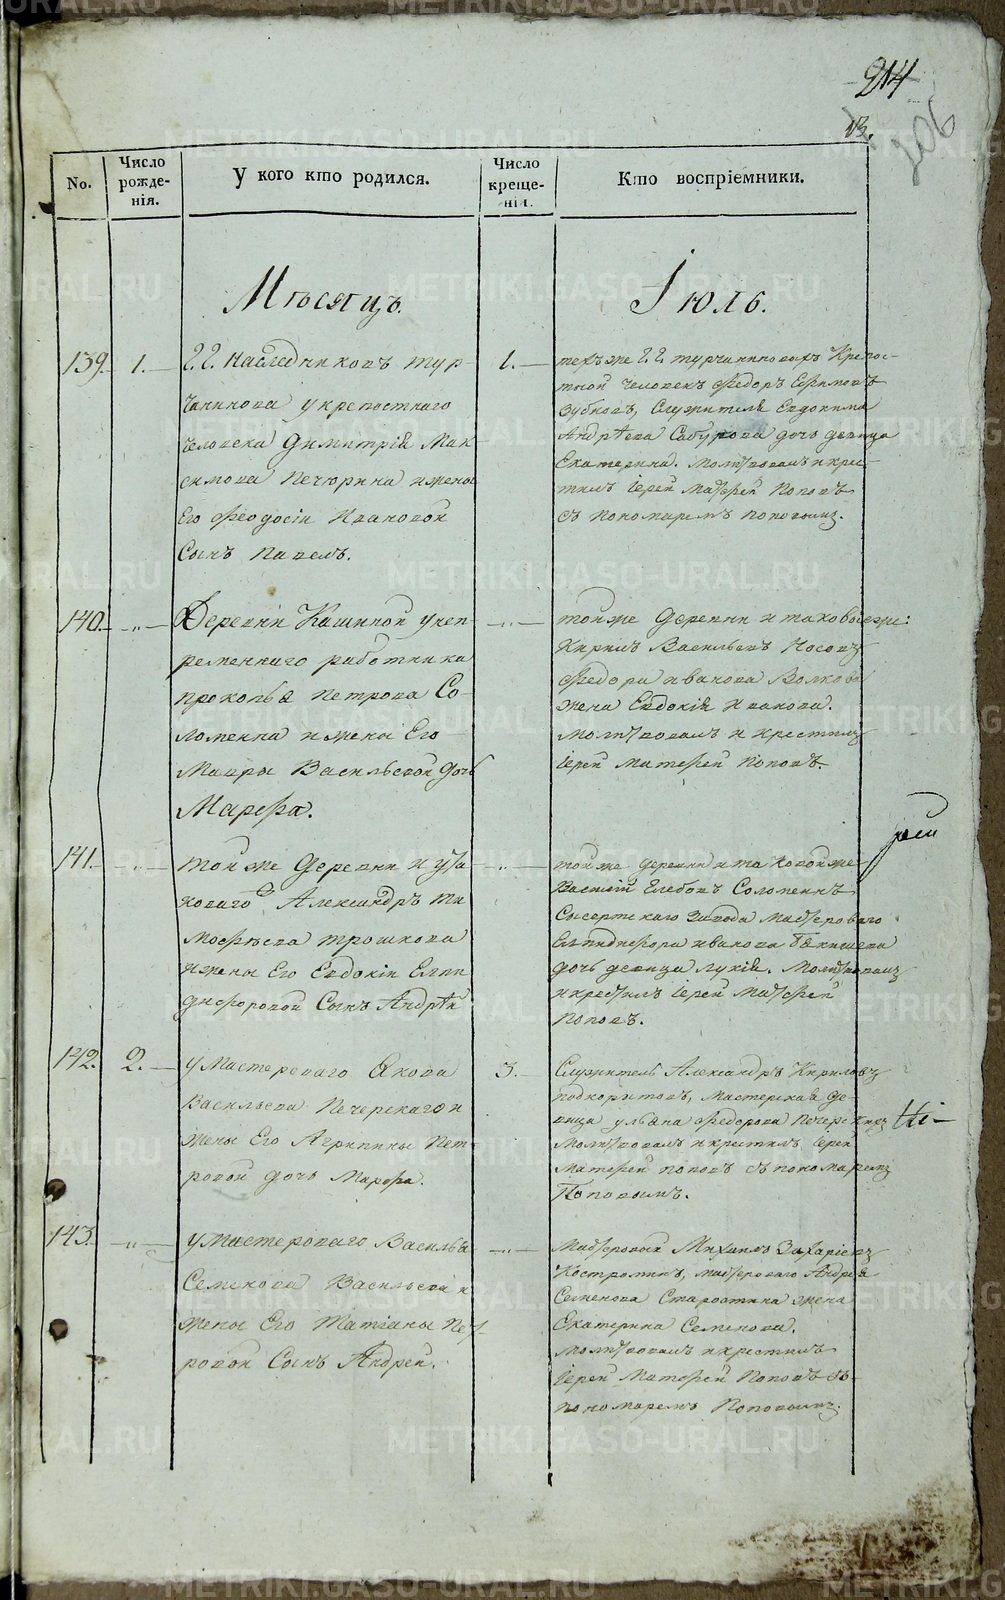 214
13.
206
No.
Число рожде-нія.
У кого кто родился.
Число креще-нія.
Кто воспріемники.
Мѣсяцъ.
Іюль.
139. 1.
Г.Г. наслѣдниковъ тур-
чанинова у крепостнаго
человека Димитрія Мак
симова Печюрина и жены
Его Феодосіи Ивановой
Сынъ Павелъ.
1.
техъ же Г.Г. турчаниновыхъ Крепос-
тной человекъ Федоръ Ефимовъ
Зубковъ, Служителя Евдокима
Андрѣева Сабурова дочь девица
Екатерина. Молитвовалъ и крес-
тилъ Іерей Матфей Поповъ
съ пономаремъ поповымъ.
140. -„-
Деревни Кашиной у неп-
ременнаго работника
прокопья петрова Со-
ломеина и жены Его
Мавры Васильевой дочь
Марфа.
-„-
той же деревни и таковые же:
Кирилъ Васильевъ Носовъ
Федора иванова Волкова
жена Евдокія Иванова.
Молитвовалъ и крестилъ
Іерей Матфей Поповъ.
141. -„-
той же деревни и у та
коваго Александръ Ти
мофѣева трошкова
и жены Его Евдокіи Елпи
дифоровой Сынъ Андрѣй
-„-
той же деревни и таковой же
Василій Глебовъ Соломеинъ
Сысертскаго завода мастероваго
Елпидифора иванова
дочь девица лукія. Молитвовалъ
и крестилъ Іерей Матфей
Поповъ.
142. 2.
у Мастероваго Якова
Васильева Печерскаго и
жены Его Агрипины Пет-
ровой дочь Марфа.
3.
Служитель Александръ Кириловъ
подкорытовъ, мастерская де-
вица ульяна федорова
Молитвовалъ и крестилъ Іерей
Матфей поповъ съ пономаремъ
Поповымъ.
143. -„-
у Мастероваго Василья
Семенова Васильева и
жены Его Татіаны Пет-
ровой Сынъ Андрей.
-„-
Мастеровый Михаилъ Захаріевъ
Костроминъ, мастероваго Андрея
Семенова Старостина жена
Екатерина Семенова.
Молитвовалъ и крестилъ
Іерей Матфей Поповъ съ
пономаремъ Поповымъ.
рей
METRIKI.GASO-URAL.RU